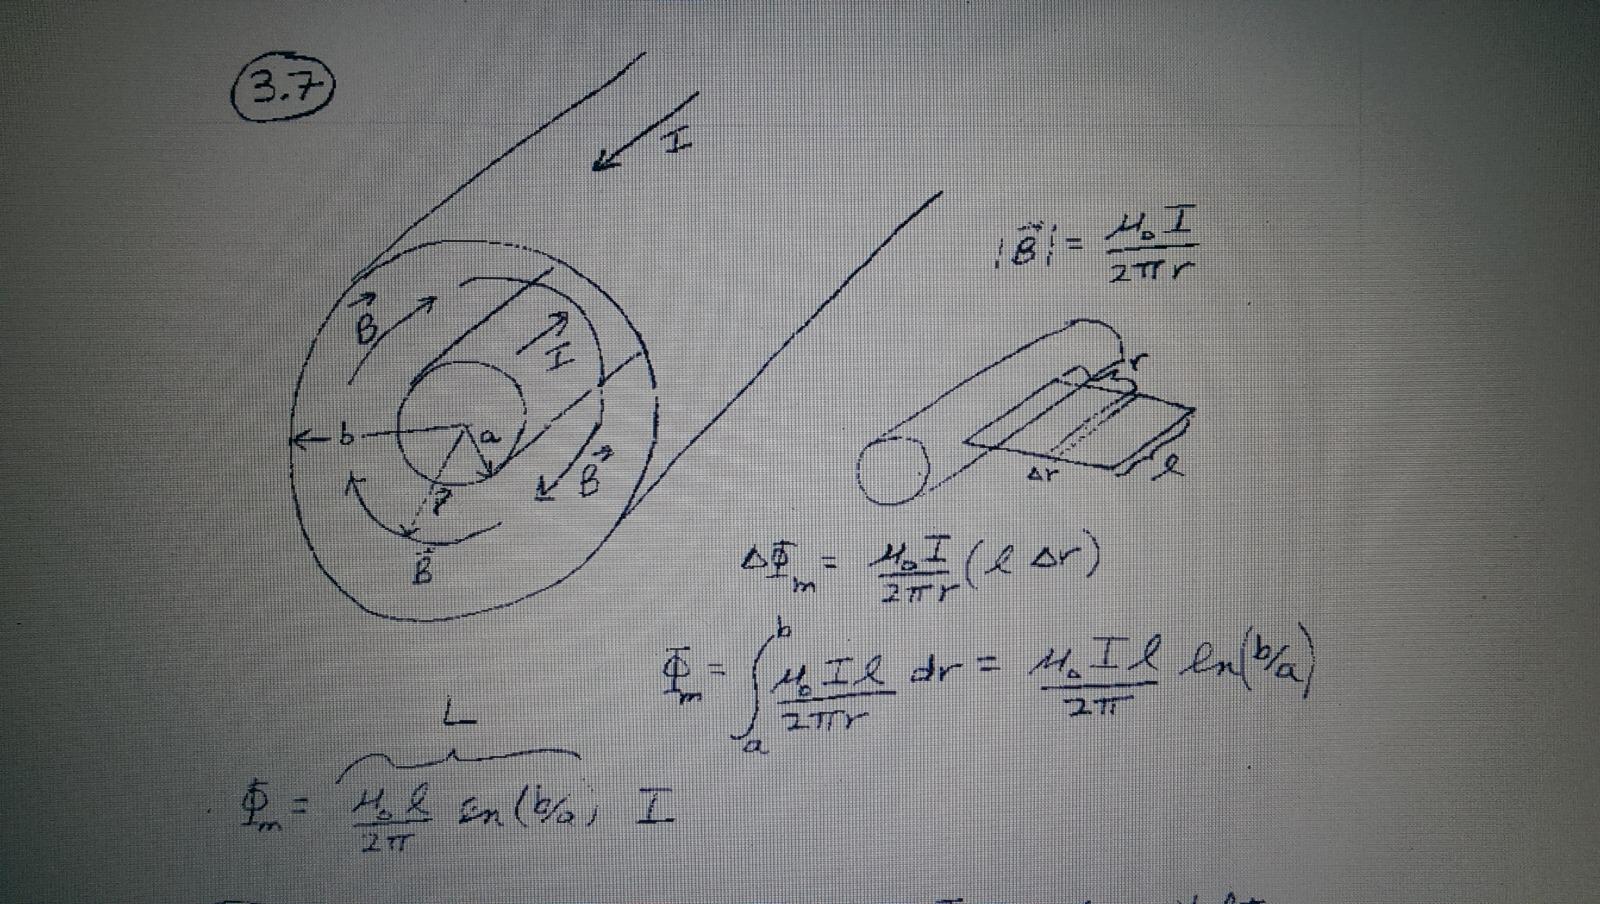 3.7
I
|B⃗| = μ₀I / 2πr
B⃗
I
b
a
r⃗
B⃗
B⃗
r
Δr
l
ΔΦₘ = μ₀I / 2πr (l Δr)
Φₘ = ∫ₐᵇ μ₀Il / 2πr dr = μ₀Il / 2π ln(b/a)
L
Φₘ = μ₀l / 2π ln(b/a) I